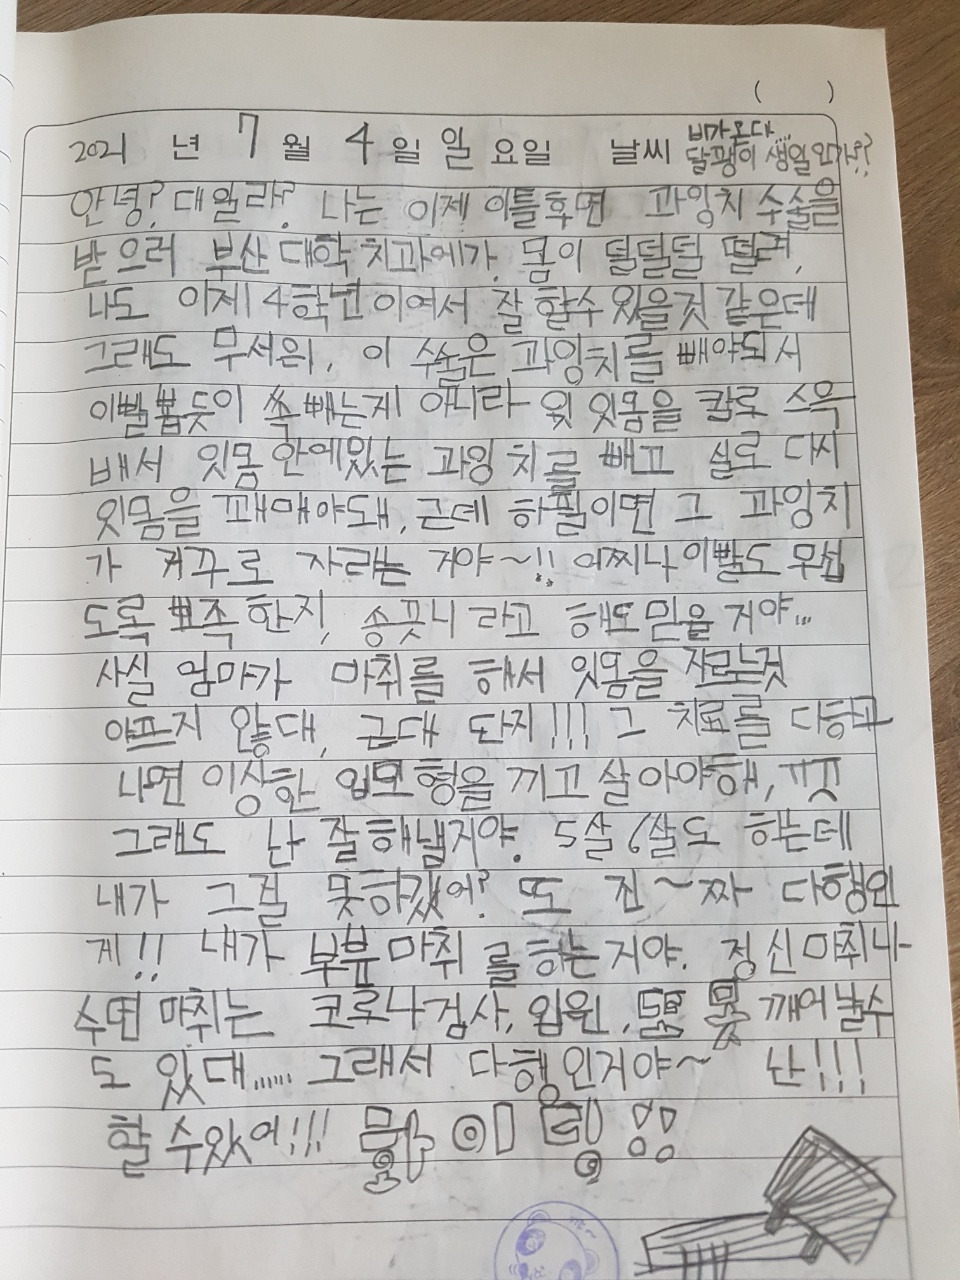 ( )
비가온다...
2021 년 7 월 4 일 일 요일 날씨 달팽이 생일인가??
안녕? 대월라? 나는 이제 이틀후면 과잉치 수술을
받으러 부산대학치과에가. 몸이 덜덜덜 떨려,
나도 이제 4학년이여서 잘할수 있을것 같은데
그래도 무서워, 이 수술은 과잉치를 빼야되서
이빨뽑듯이 쏙빼는게 아니라 윗 잇몸을 칼로 스윽
배서 잇몸안에있는 과잉치를 빼고 실로 다시
잇몸을 꽤매야돼, 근데 하필이면 그 과잉치
가 거꾸로 자라는 거야~!! 어찌나 이빨도 무섭
도록 뾰족한지, 송곳니라고 해도믿을거야...
사실 엄마가 마취를 해서 잇몸을 자르는것
아프지 않대, 근대 단지!!! 그 치료를 다하고
나면 이상한 입모형을 끼고 살아야해, ㄲㅈ
그래도 난 잘해낼거야. 5살 6살도 하는데
내가 그걸 못하겠어? 또 진~짜 다행인
게!! 내가 부분마취를하는거야. 정신마취나
수면마취는 코로나검사, 입원, 또 못 깨어날수
도 있대...... 그래서 다행인거야~ 난!!!
할수있어!!! 화이팅